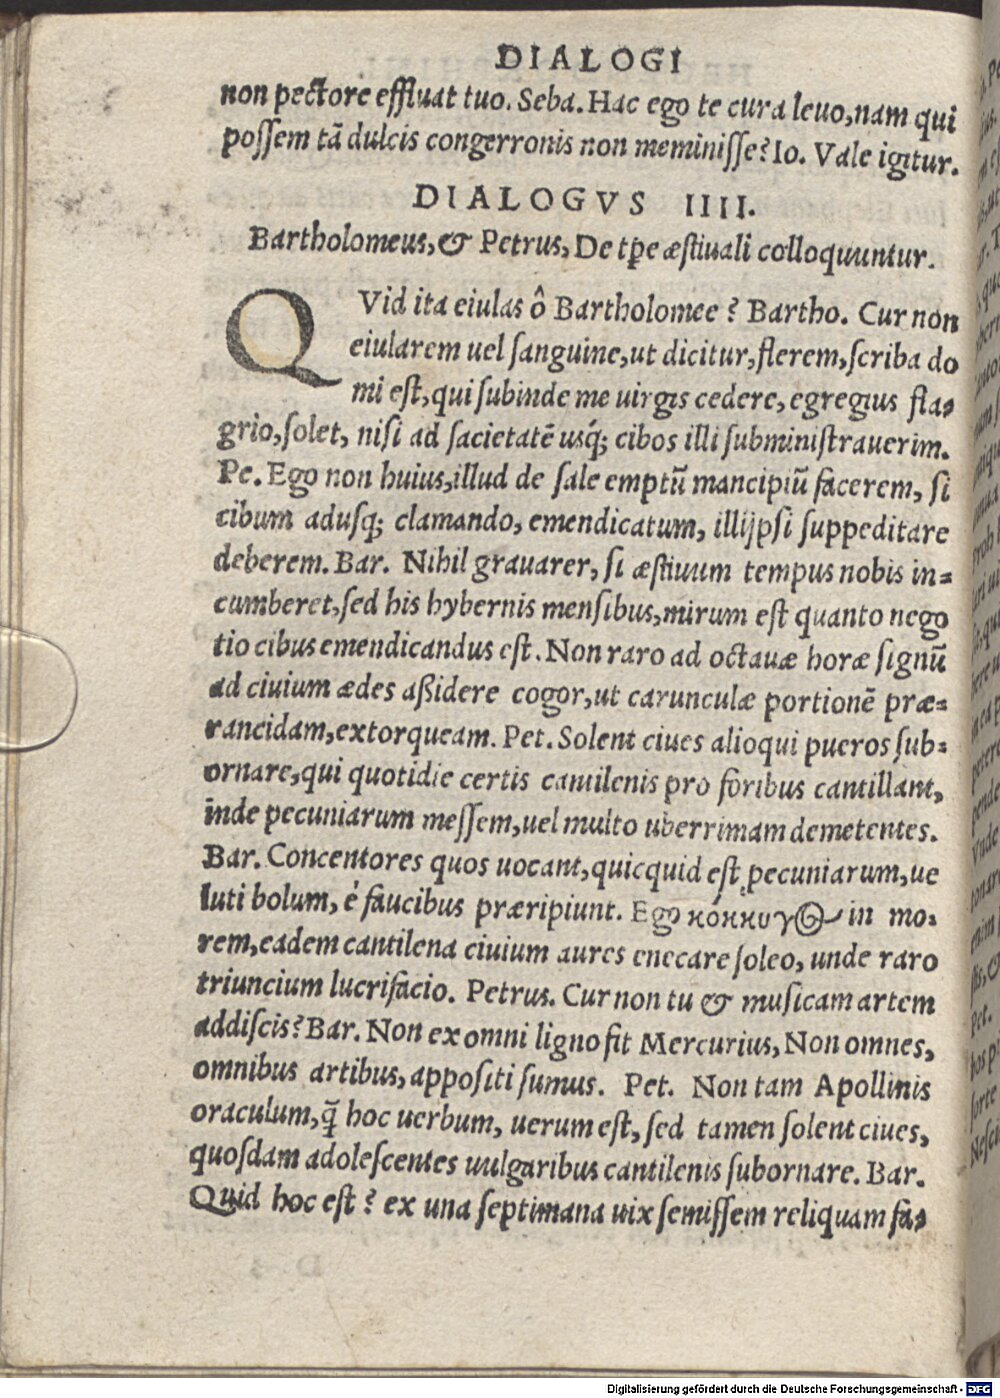 DIALOGI
non pectore effluat tuo. Seba. Hac ego te cura leuo, nam qui
possem tā dulcis congerronis non meminisse? Io. Vale igitur.
DIALOGVS IIII.
Bartholomeus, & Petrus, De tp̄e æstiuali colloquuntur.
QVid ita eiulas ô Bartholomee? Bartho. Cur non
eiularem uel sanguine, ut dicitur, flerem, scriba do
mi est, qui subinde me uirgis cedere, egregius fla-
grio, solet, nisi ad sacietatē usq; cibos illi subministrauerim.
Pe. Ego non huius, illud de sale emptū mancipiū facerem, si
cibum adusq; clamando, emendicatum, illi ipsi suppeditare
deberem. Bar. Nihil grauarer, si æstiuum tempus nobis in=
cumberet, sed his hybernis mensibus, mirum est quanto nego
tio cibus emendicandus est. Non raro ad octauæ horæ signū
ad ciuium ædes aßidere cogor, ut carunculæ portionē præ=
rancidam, extorqueam. Pet. Solent ciues alioqui pueros sub=
ornare, qui quotidie certis cantilenis pro foribus cantillant,
inde pecuniarum messem, uel multo uberrimam demetentes.
Bar. Concentores quos uocant, quicquid est pecuniarum, ue
luti bolum, è faucibus præripiunt. Ego κόκκυγος in mo-
rem, eadem cantilena ciuium aures enecare soleo, unde raro
triuncium lucrifacio. Petrus. Cur non tu & musicam artem
addiscis? Bar. Non ex omni ligno fit Mercurius, Non omnes,
omnibus artibus, appositi sumus. Pet. Non tam Apollinis
oraculum, q̄ hoc uerbum, uerum est, sed tamen solent ciues,
quosdam adolescentes uulgaribus cantilenis subornare. Bar.
Quid hoc est? ex una septimana uix semissem reliquam fa-
Digitalisierung gefördert durch die Deutsche Forschungsgemeinschaft - DFG